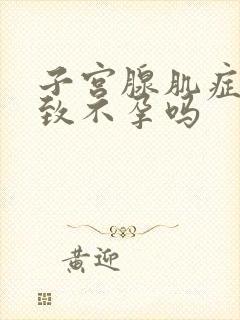 子宫腺肌症
致不孕吗
黄迎